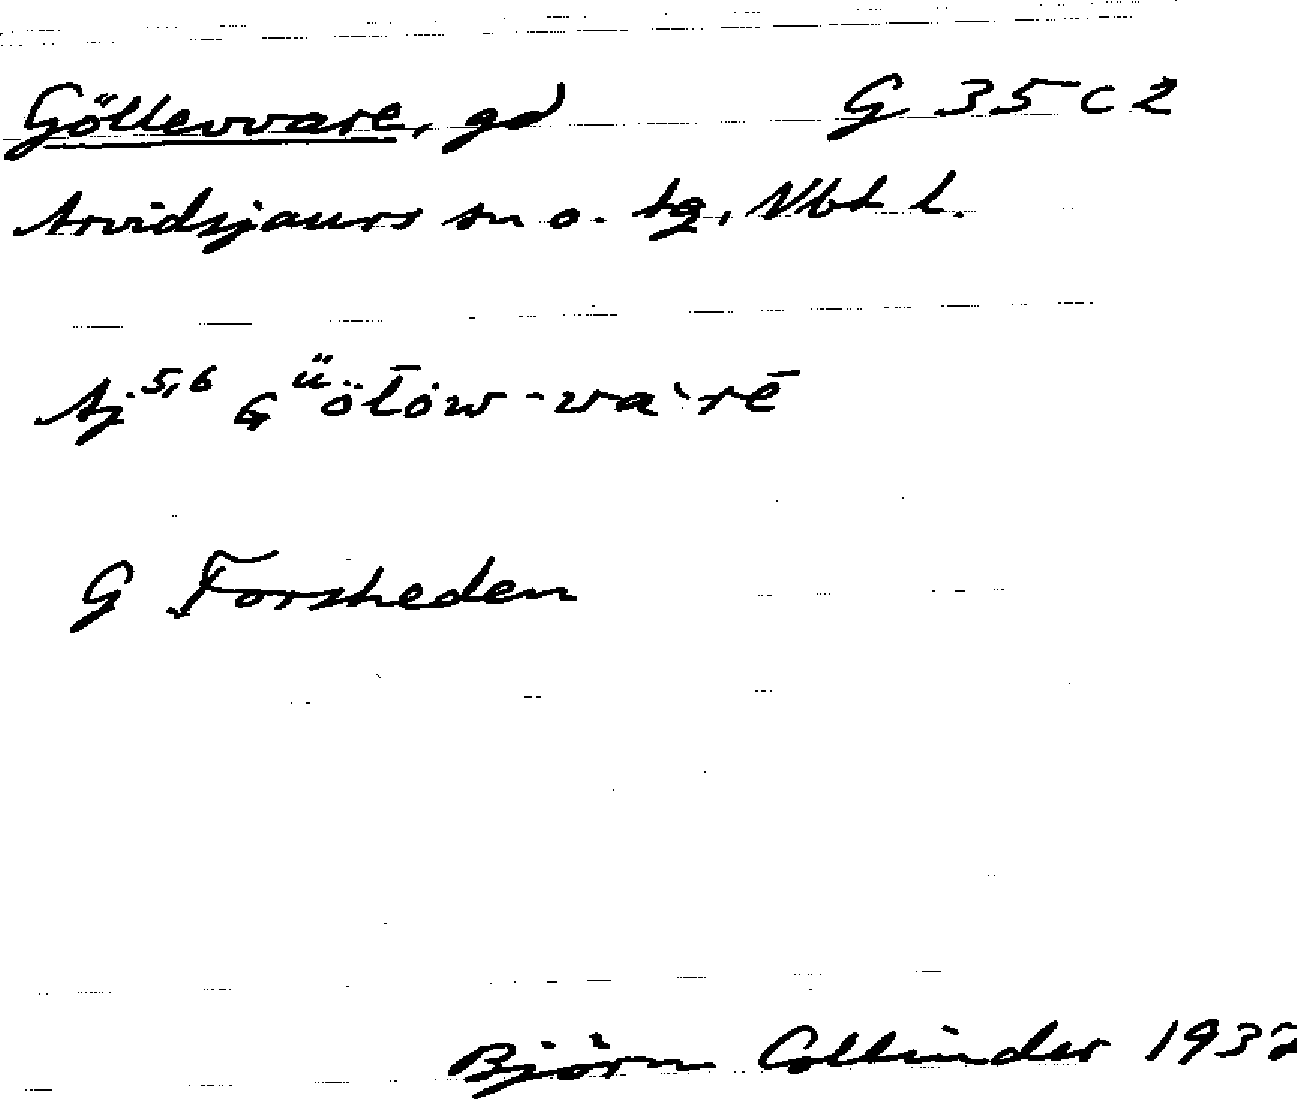 Göllevvare, gd G 35 c 2
Arvidsjaurs sn o. tg, Vbt l.
Aj 5,6 Güöl̄ȯw-va`rē
G Forsheden
Björn Collinder 1932